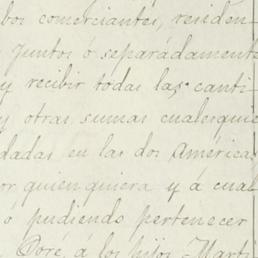 bos comerciantes, residen-
, juntos ó separádamente
y recibir todas las canti-
y otras sumas cualesquie
dadas en las dos América
or quien quiera y á cual
ó pudiendo pertenecer
Doré, á los hijos Marti